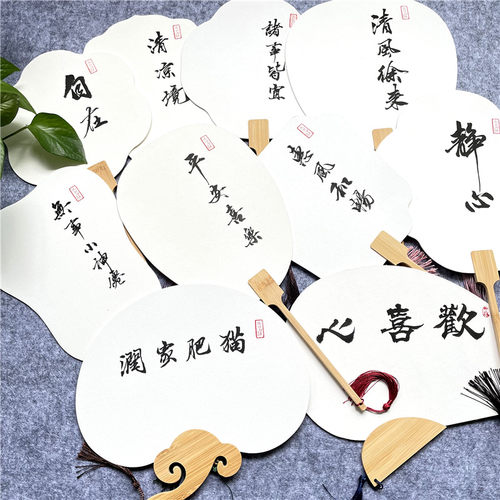 自在
清凉境
諸事皆宜
清風徐来
静心
無事小神僊
平安喜樂
惠風和暢
猫肥家潤
歡喜心